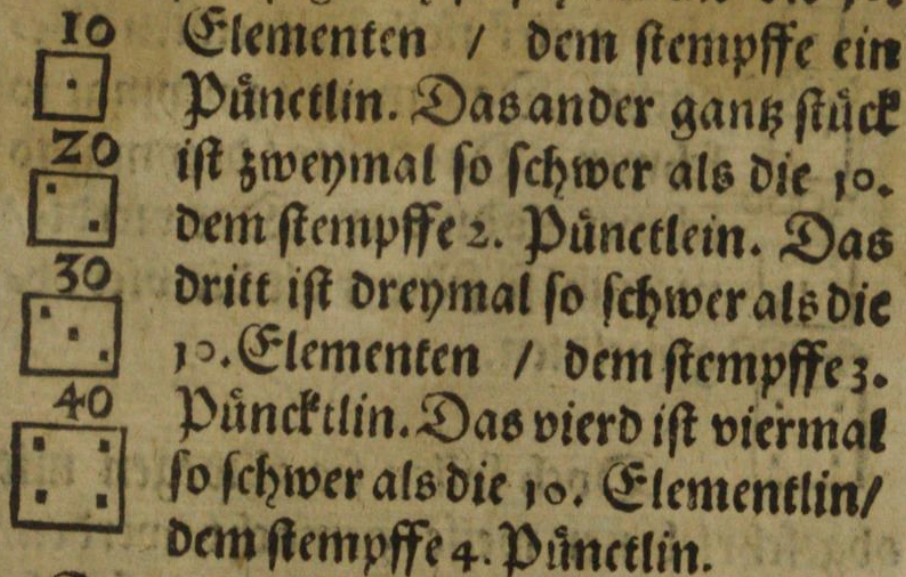 10
Elementen / dem stempffe ein
Pünctlin. Das ander gantz stück
20
ist zweymal so schwer als die 10.
dem stempffe 2. Pünctlein. Das
30
dritt ist dreymal so schwer als die
10. Elementen / dem stempffe 3.
40
Püncktlin. Das vierd ist viermal
so schwer als die 10. Elementlin/
dem stempffe 4. Pünctlin.